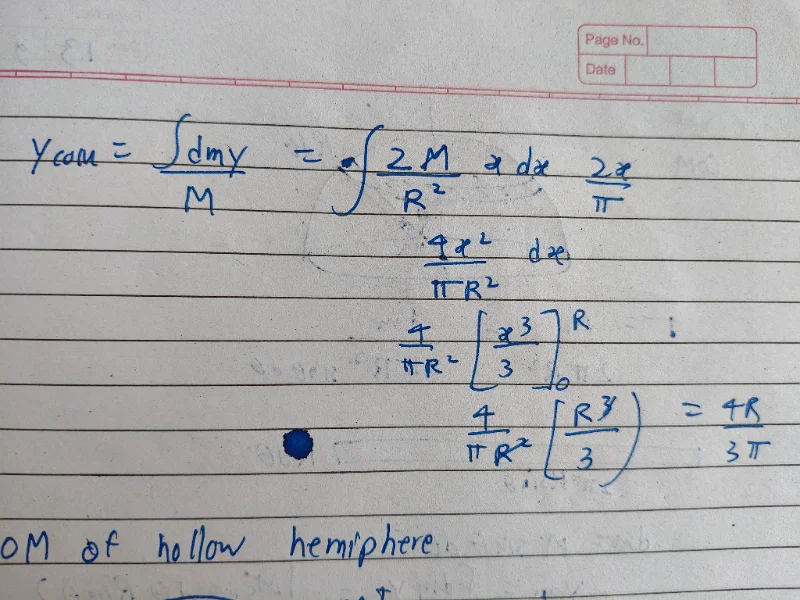 Page No.
Date
Ycom = ∫dmy / M = ∫ 2M / R² x dx 2x / π
4x² / πR² dx
4 / πR² [x³ / 3]₀ᴿ
4 / πR² [R³ / 3) = 4R / 3π
OM of hollow hemiphere